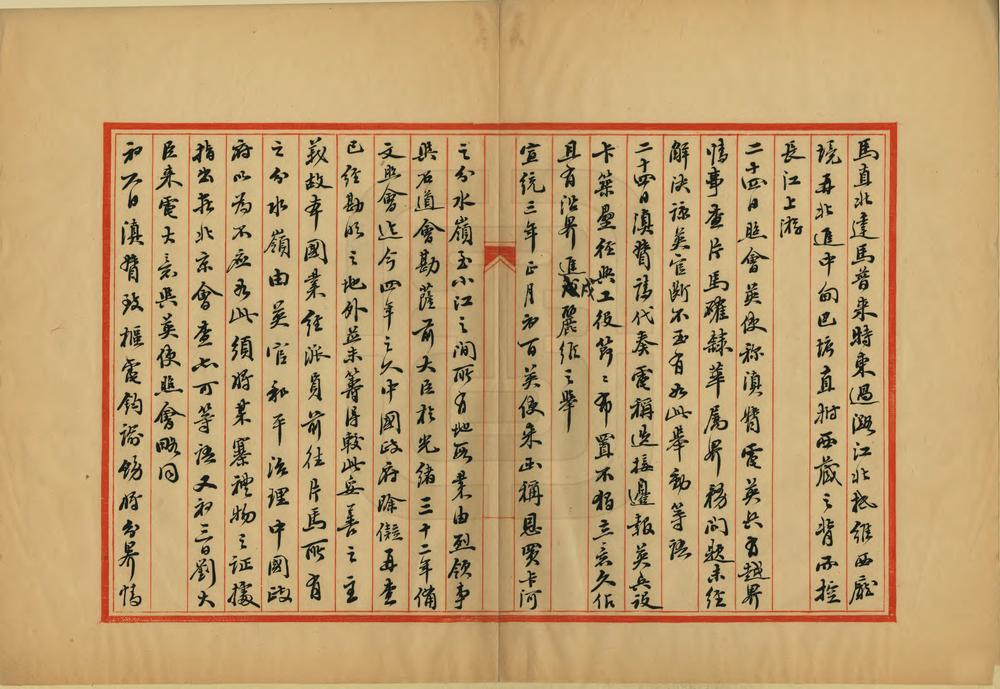 馬直北達馬普來特東過潞江北抵維西廳
境再北進中甸巴塘直拊西藏之背而控
長江上游
二十四日照會英使称滇督電英兵有越界
情事查片馬確隸華屬界務問題未經
解決該英官断不至有如此舉動等語
二十四日滇督請代奏電稱迭接邊報英兵設
卡築壘徑興工役节々布置不独立意久佔
且有沿界進戍麗維之舉
宣統三年正月初一日英使来函稱恩買卡河
之分水嶺至小江之間所有地段業由烈領事
與石道會勘薩前大臣於光緒三十二年備
文照會迄今四年之久中國政府除儗再查
已經勘明之地外並未籌得較此妥善之主
義故本國業經派員前往片馬所有
之分水嶺由英官和平治理中國政
府以為不应如此須將某寨禮物之証據
指出在北京會查亦可等語又初三日劉大
臣来電大意與英使照會畧同
初六日滇督致樞電鈞諭飭將分界情